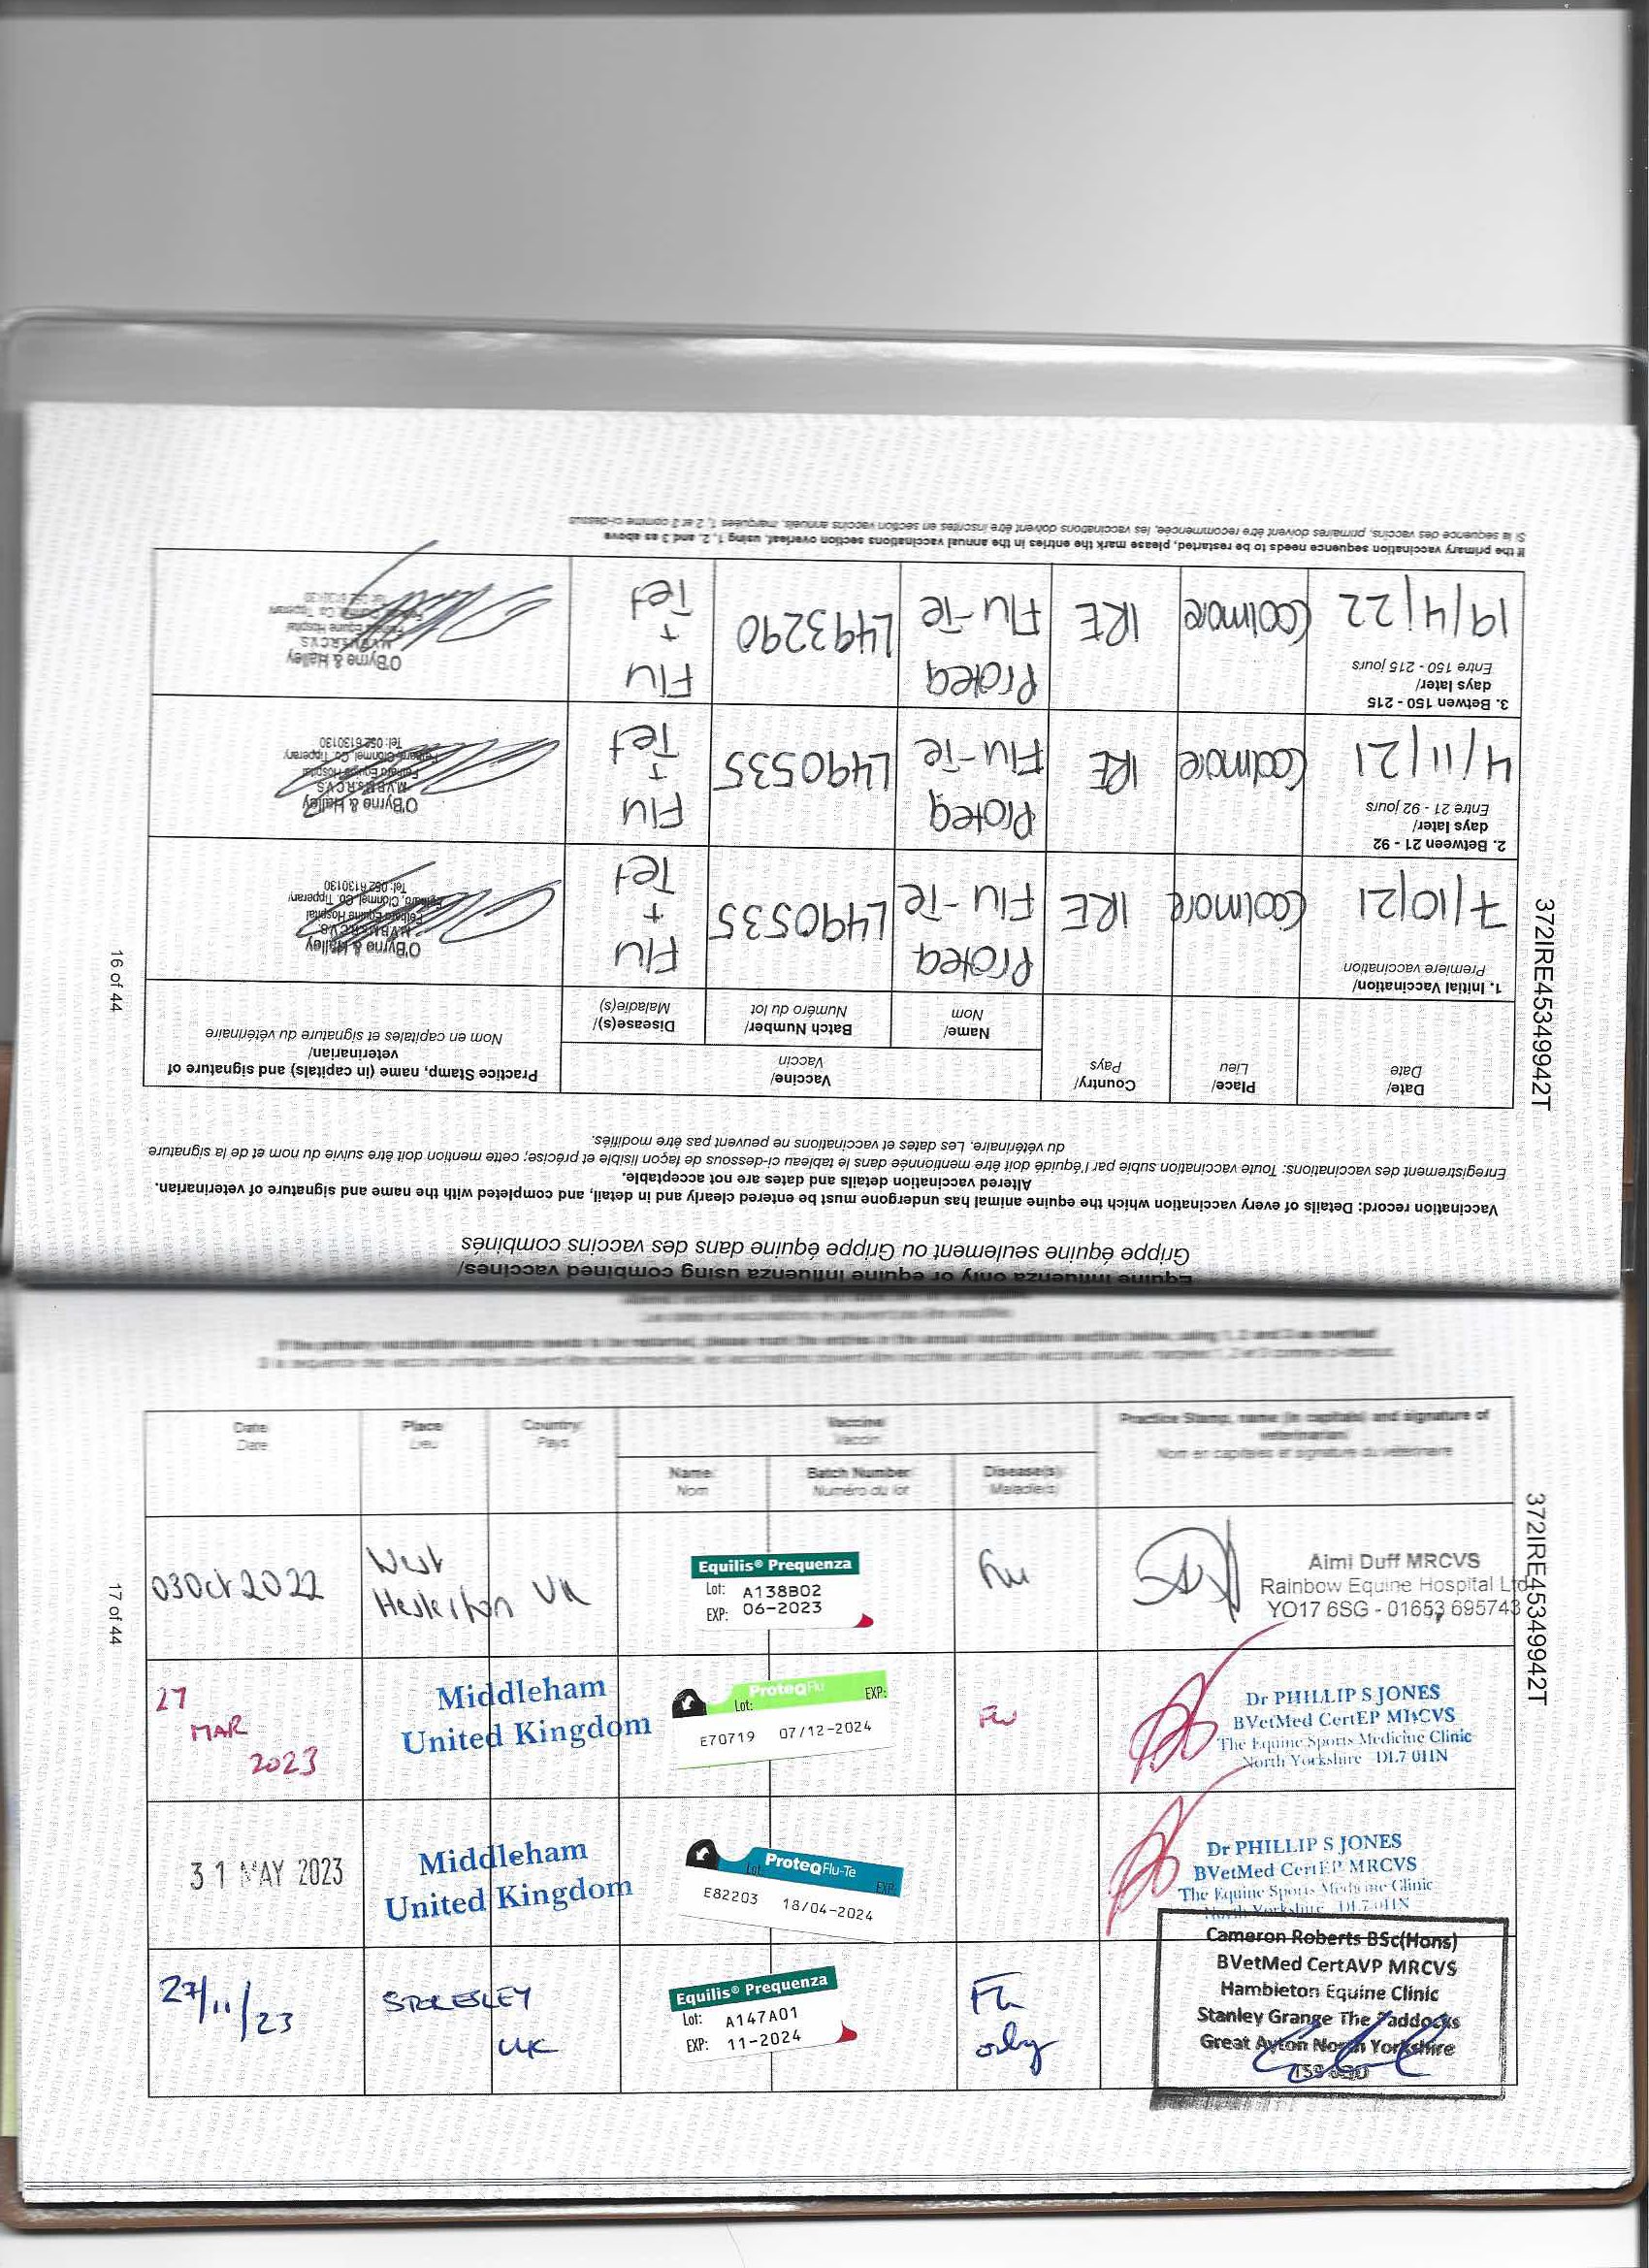 Equine influenza only or equine influenza using combined vaccines/
Grippe équine seulement ou Grippe équine dans des vaccins combinés
Vaccination record: Details of every vaccination which the equine animal has undergone must be entered clearly and in detail, and completed with the name and signature of veterinarian.
Altered vaccination details and dates are not acceptable.
Enregistrement des vaccinations: Toute vaccination subie par l'équidé doit être mentionnée dans le tableau ci-dessous de façon lisible et précise; cette mention doit être suivie du nom et de la signature
du vétérinaire. Les dates et vaccinations ne peuvent pas être modifiés.
Date/
Date
Place/
Lieu
Country/
Pays
Vaccine/
Vaccin
Name/
Nom
Batch Number/
Numéro du lot
Disease(s)/
Maladie(s)
Practice Stamp, name (in capitals) and signature of
veterinarian/
Nom en capitales et signature du vétérinaire
1. Initial Vaccination/
Premiere vaccination
7/10/21
Coolmore
IRE
Proteq
Flu-Te
L490535
Flu
+
Tet
O'Byrne & Halley
M.V.B M.R.C.V.S.
Fethard Equine Hospital
Fethard, Clonmel, Co. Tipperary
Tel: 052 6130130
2. Between 21 - 92
days later/
Entre 21 - 92 jours
4/11/21
Coolmore
IRE
Proteq
Flu-Te
L490535
Flu
+
Tet
O'Byrne & Halley
M.V.B M.R.C.V.S.
Fethard Equine Hospital
Fethard, Clonmel, Co. Tipperary
Tel: 052 6130130
3. Betwen 150 - 215
days later/
Entre 150 - 215 jours
19/4/22
Coolmore
IRE
Proteq
Flu-Te
L493290
Flu
+
Tet
O'Byrne & Halley
M.V.B M.R.C.V.S.
Fethard Equine Hospital
If the primary vaccination sequence needs to be restarted, please mark the entries in the annual vaccinations section overleaf, using 1, 2, and 3 as above
Si la séquence des vaccins, primaires doivent être recommencée, les vaccinations doivent être inscrites en section vaccins annuels, marquées 1, 2 et 3 comme ci-dessus
16 of 44
372IRE45349942T
If the primary vaccination sequence needs to be restarted, please mark the entries in the annual vaccinations section below, using 1, 2 and 3 as overleaf
Date
Date
Place
Lieu
Country
Pays
Vaccine
Vaccin
Name
Nom
Batch Number
Numéro du lot
Disease(s)
Maladie(s)
Practice Stamp, name (in capitals) and signature of
veterinarian
Nom en capitales et signature du vétérinaire
03 Oct 2022
West
Heslerton
UK
Equilis® Prequenza
Lot: A138B02
EXP: 06-2023
Flu
Aimi Duff MRCVS
Rainbow Equine Hospital Ltd
YO17 6SG - 01653 695743
27
MAR
2023
Middleham
United Kingdom
ProteqFlu
Lot: EXP:
E70719 07/12-2024
Flu
Dr PHILLIP S JONES
BVetMed CertEP MRCVS
The Equine Sports Medicine Clinic
North Yorkshire DL7 0HN
31 MAY 2023
Middleham
United Kingdom
ProteqFlu-Te
Lot: EXP:
E82203 18/04-2024
Dr PHILLIP S JONES
BVetMed CertEP MRCVS
The Equine Sports Medicine Clinic
North Yorkshire DL7 0HN
27/11/23
STOKESLEY
UK
Equilis® Prequenza
Lot: A147A01
EXP: 11-2024
Flu
only
Cameron Roberts BSc(Hons)
BVetMed CertAVP MRCVS
Hambleton Equine Clinic
Stanley Grange The Paddocks
Great Ayton North Yorkshire
17 of 44
372IRE45349942T